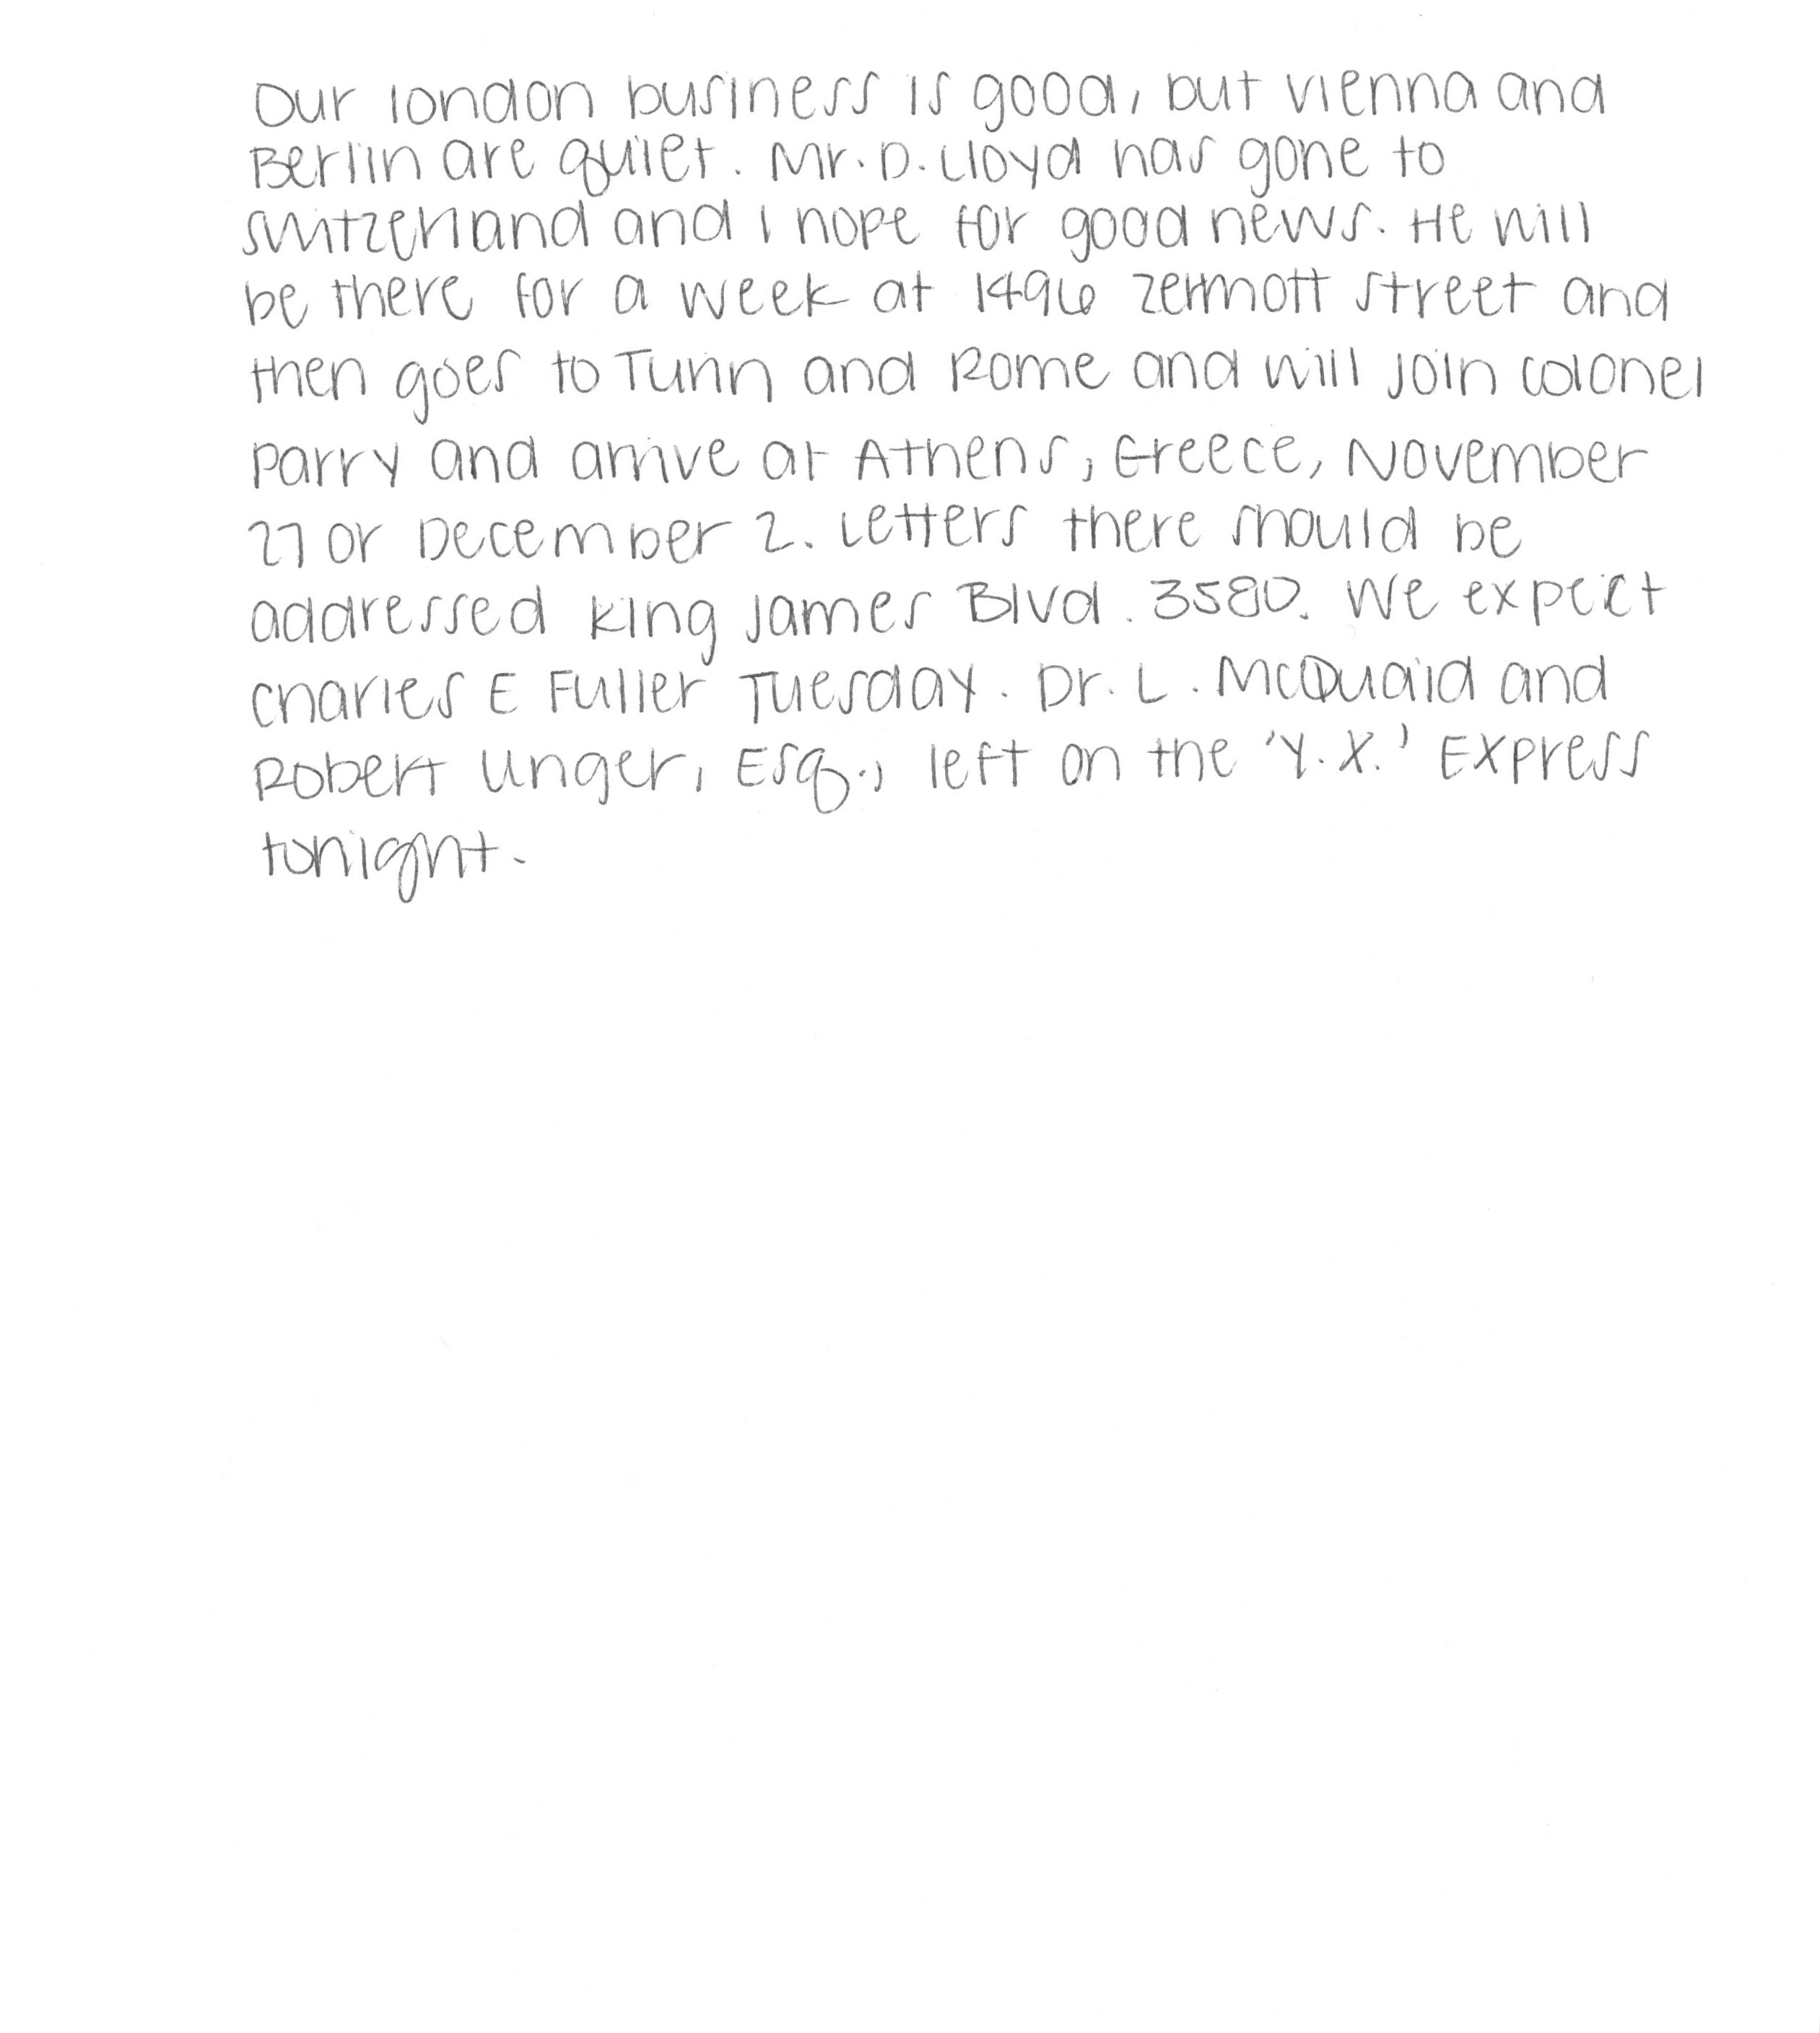 Our london business is good, but vienna and
Berlin are quiet. Mr. D. Lloyd has gone to
switzerland and I hope for good news. He will
be there for a week at 1496 zermott street and
then goes to Turin and Rome and will join colonel
parry and arrive at Athens, Greece, November
27 or December 2. Letters there should be
addressed king James Blvd. 3580. We expect
charles E Fuller Tuesday. Dr. L. McQuaid and
Robert Unger, Esq., left on the 'Y.X.' Express
tonight.